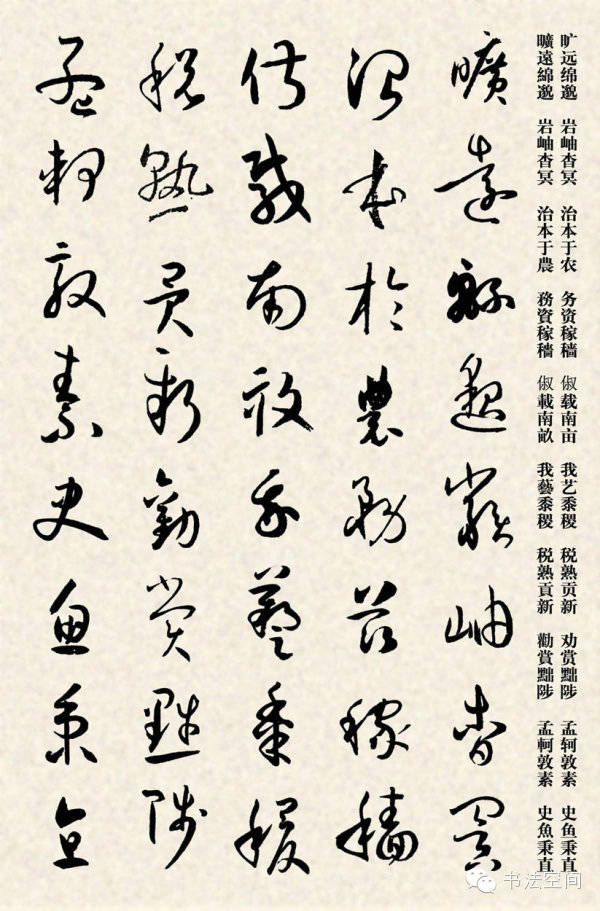 旷远绵邈 岩岫杳冥 治本于农 务资稼穑 俶载南亩 我艺黍稷 税熟贡新 劝赏黜陟 孟轲敦素 史鱼秉直
曠遠綿邈 岩岫杳冥 治本于農 務資稼穡 俶載南畝 我藝黍稷 税熟貢新 勸賞黜陟 孟軻敦素 史魚秉直
曠遠綿邈巖岫杳冥
治本於農務茲稼穡
俶載南畝我藝黍稷
稅熟貢新勸賞黜陟
孟軻敦素史魚秉直
书法空间